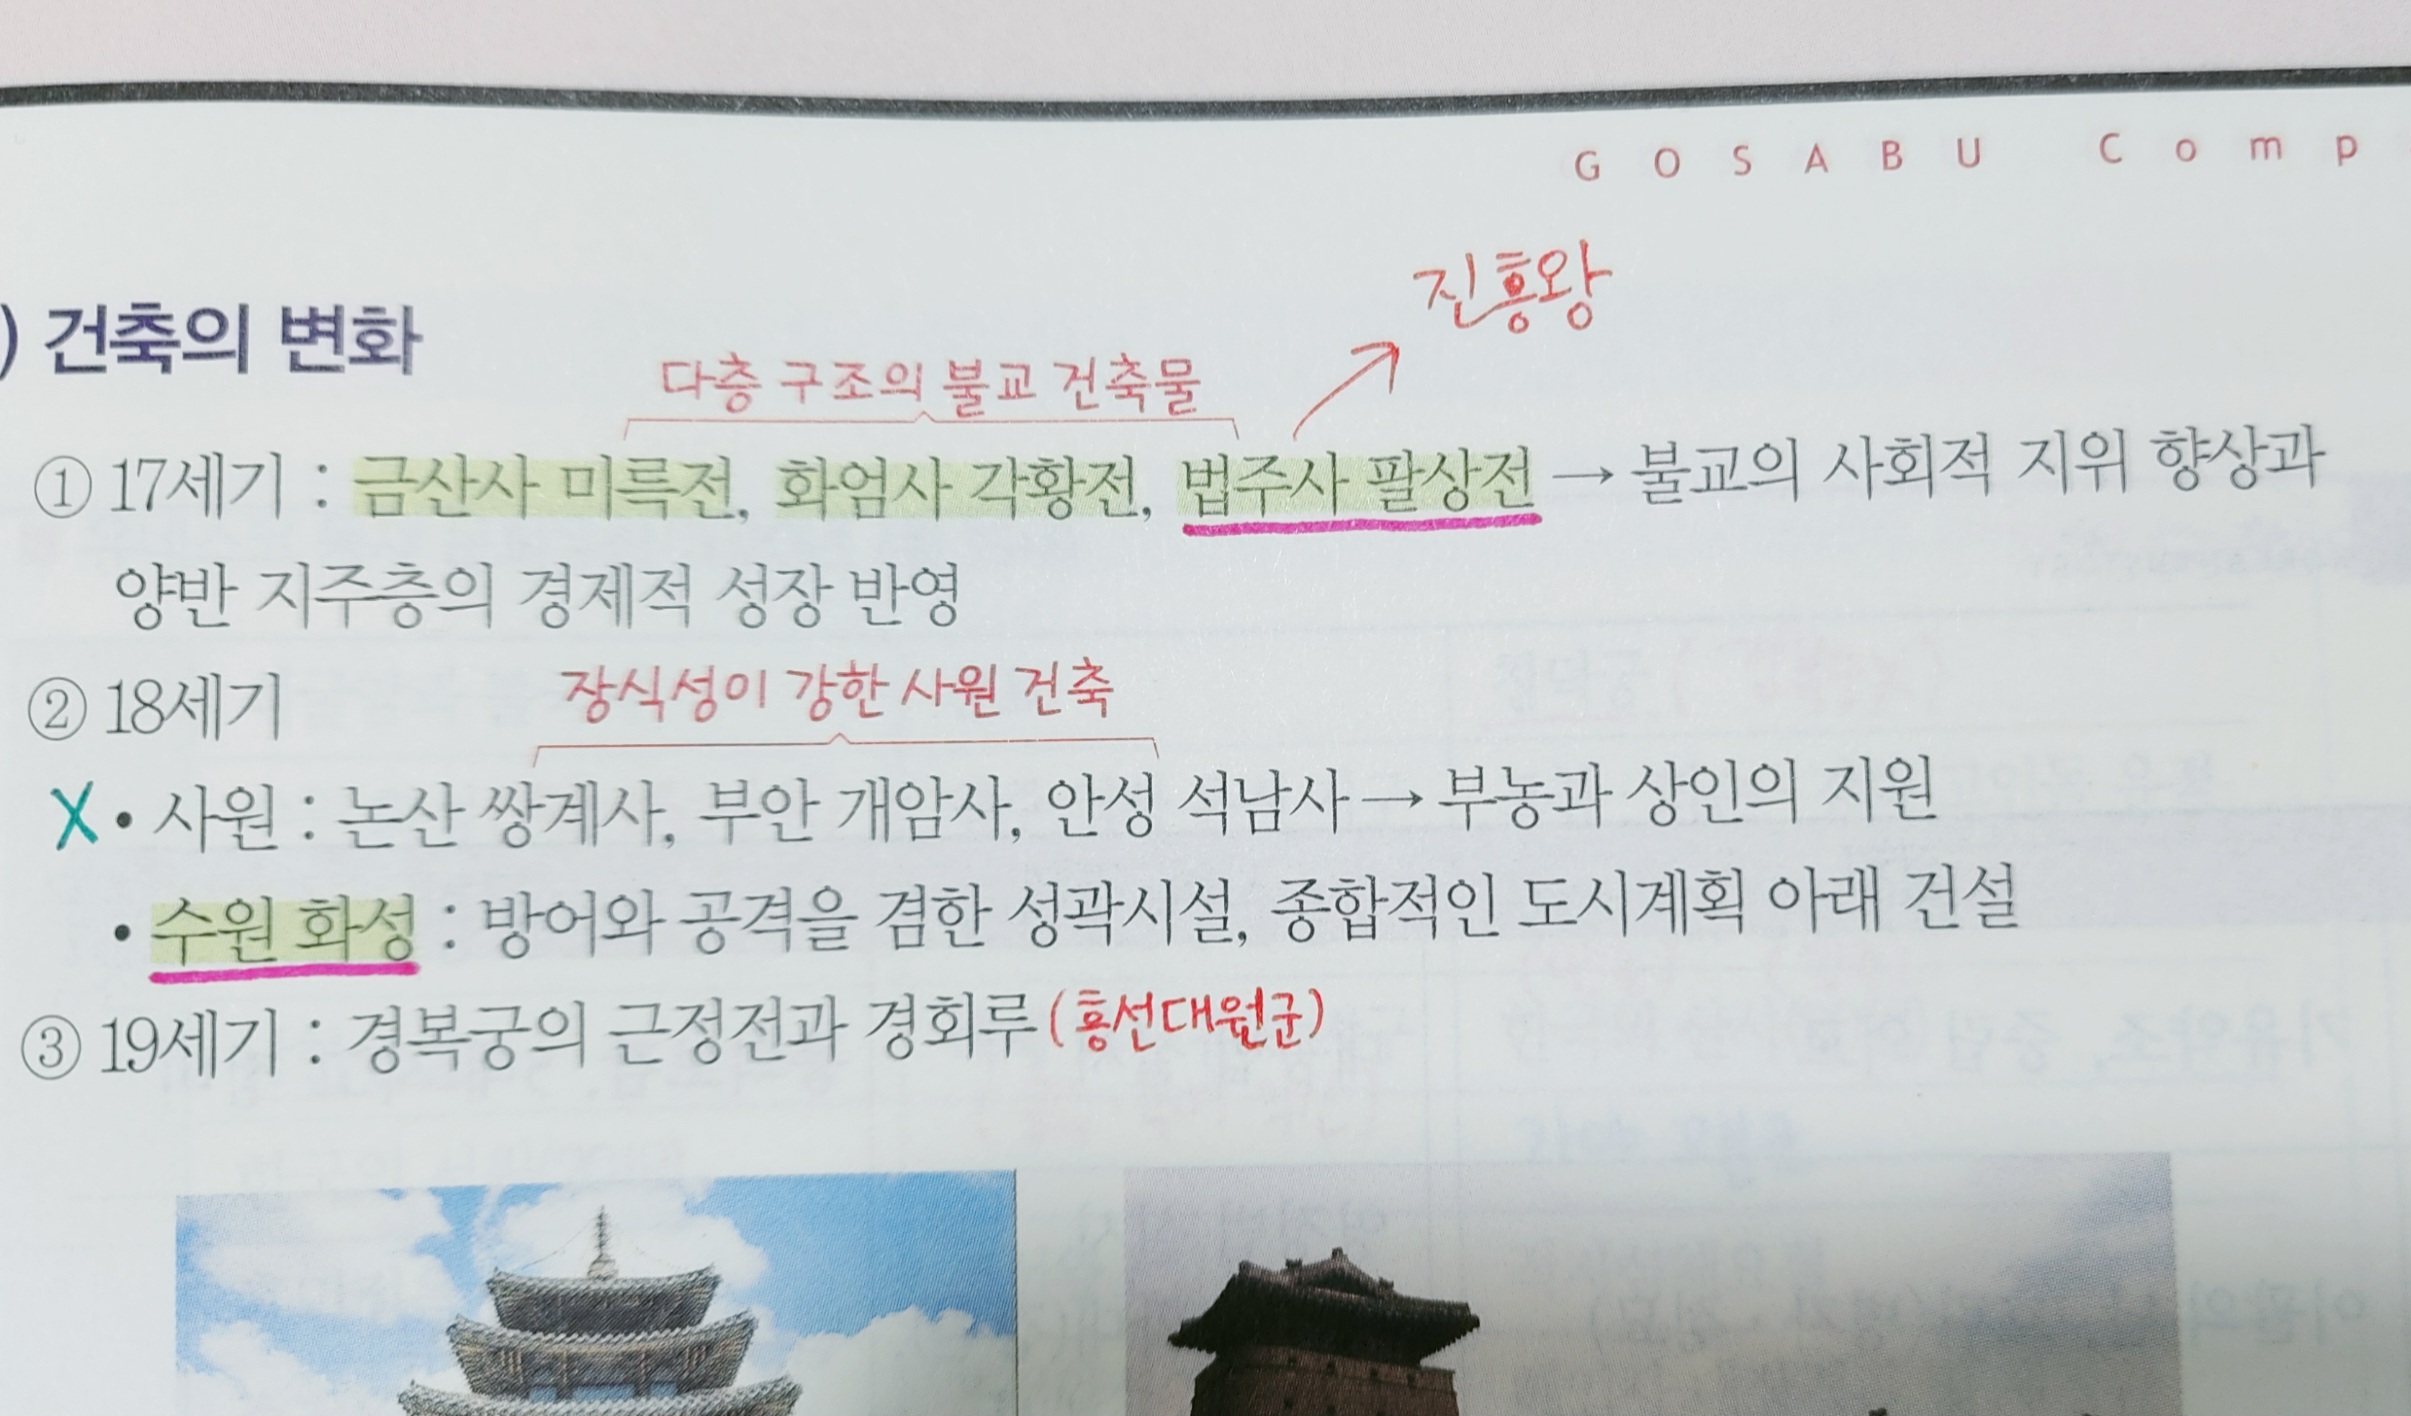 GOSABU Comp
진흥왕
) 건축의 변화
다층 구조의 불교 건축물
① 17세기 : 금산사 미륵전, 화엄사 각황전, 법주사 팔상전 → 불교의 사회적 지위 향상과
양반 지주층의 경제적 성장 반영
② 18세기
장식성이 강한 사원 건축
X • 사원 : 논산 쌍계사, 부안 개암사, 안성 석남사 → 부농과 상인의 지원
• 수원 화성 : 방어와 공격을 겸한 성곽시설, 종합적인 도시계획 아래 건설
③ 19세기 : 경복궁의 근정전과 경회루 (흥선대원군)